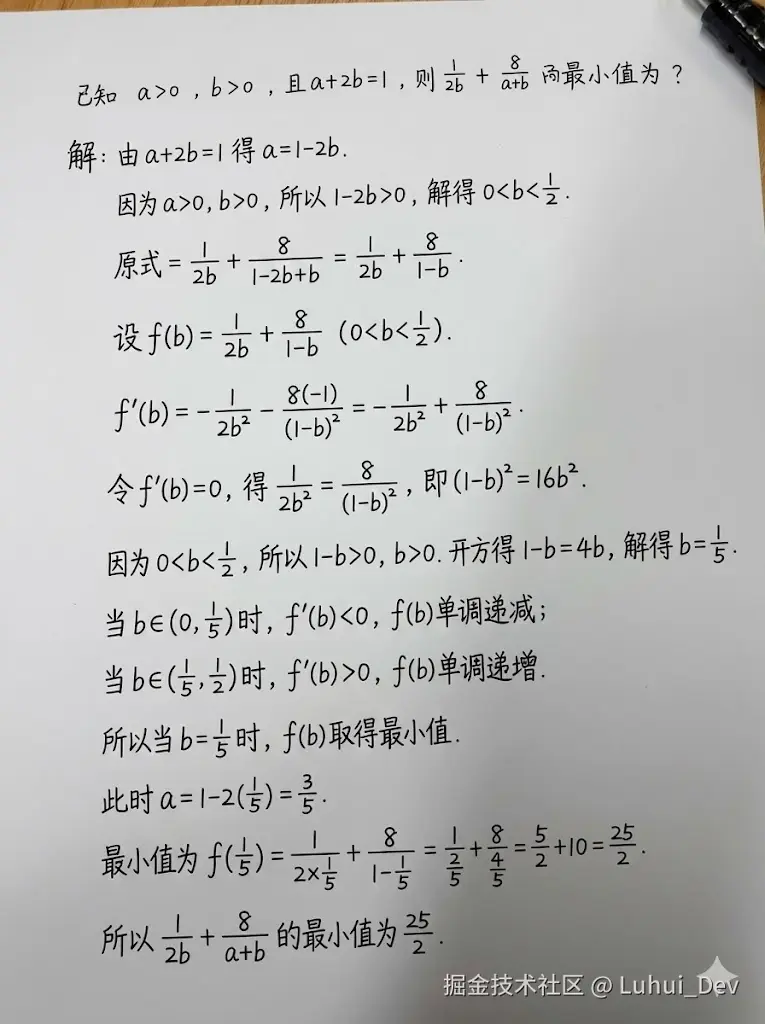 已知 a>0 , b>0 , 且 a+2b=1 , 则 1/2b + 8/a+b 最小值为 ?
解: 由 a+2b=1 得 a=1-2b.
因为 a>0, b>0, 所以 1-2b>0, 解得 0<b<1/2.
原式 = 1/2b + 8/1-2b+b = 1/2b + 8/1-b.
设 f(b) = 1/2b + 8/1-b (0<b<1/2).
f′(b) = - 1/2b² - 8(-1)/(1-b)² = - 1/2b² + 8/(1-b)².
令 f′(b)=0, 得 1/2b² = 8/(1-b)², 即 (1-b)² = 16b².
因为 0<b<1/2, 所以 1-b>0, b>0. 开方得 1-b=4b, 解得 b=1/5.
当 b∈(0, 1/5) 时, f′(b)<0, f(b) 单调递减;
当 b∈(1/5, 1/2) 时, f′(b)>0, f(b) 单调递增.
所以当 b=1/5 时, f(b) 取得最小值.
此时 a=1-2(1/5)=3/5.
最小值为 f(1/5) = 1/2×1/5 + 8/1-1/5 = 1/2/5 + 8/4/5 = 5/2 + 10 = 25/2.
所以 1/2b + 8/a+b 的最小值为 25/2.
掘金技术社区 @ Luhui_Dev